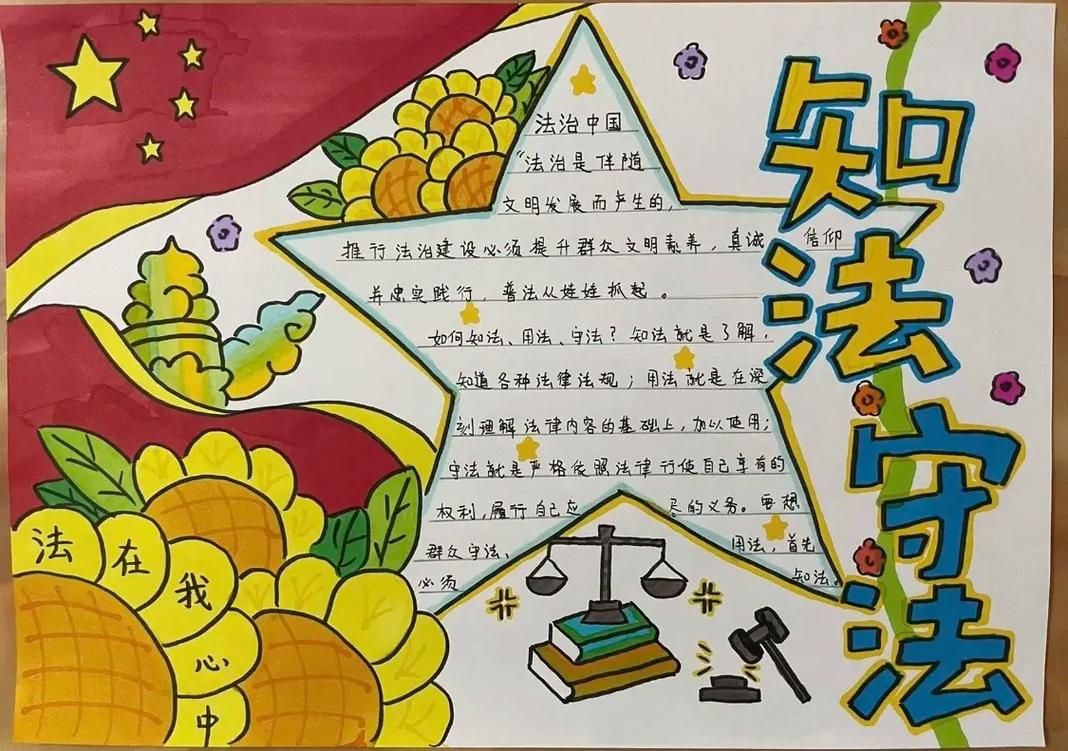 知法守法
法治中国
“法治是伴随
文明发展而产生的,
推行法治建设必须提升群众文明素养,真诚信仰
并忠实践行,普法从娃娃抓起。
如何知法、用法、守法?知法就是了解,
知道各种法律法规;用法就是在深
刻理解法律内容的基础上,加以使用;
守法就是严格依照法律行使自己享有的
权利,履行自己应尽的义务。要想
群众守法、用法,首先
必须知法。
法在我心中